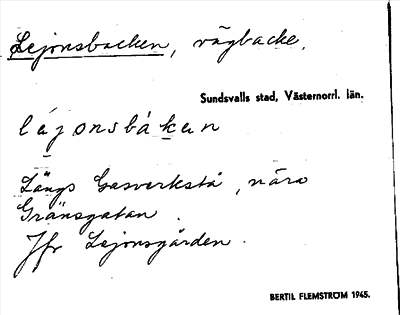 Lejonsbacken, vägbacke.
Sundsvalls stad, Västernorrl. län.
léjonsbáken
Längs Gasverkstå, nära
Gränsgatan.
Jfr Lejonsgården.
BERTIL FLEMSTRÖM 1945.